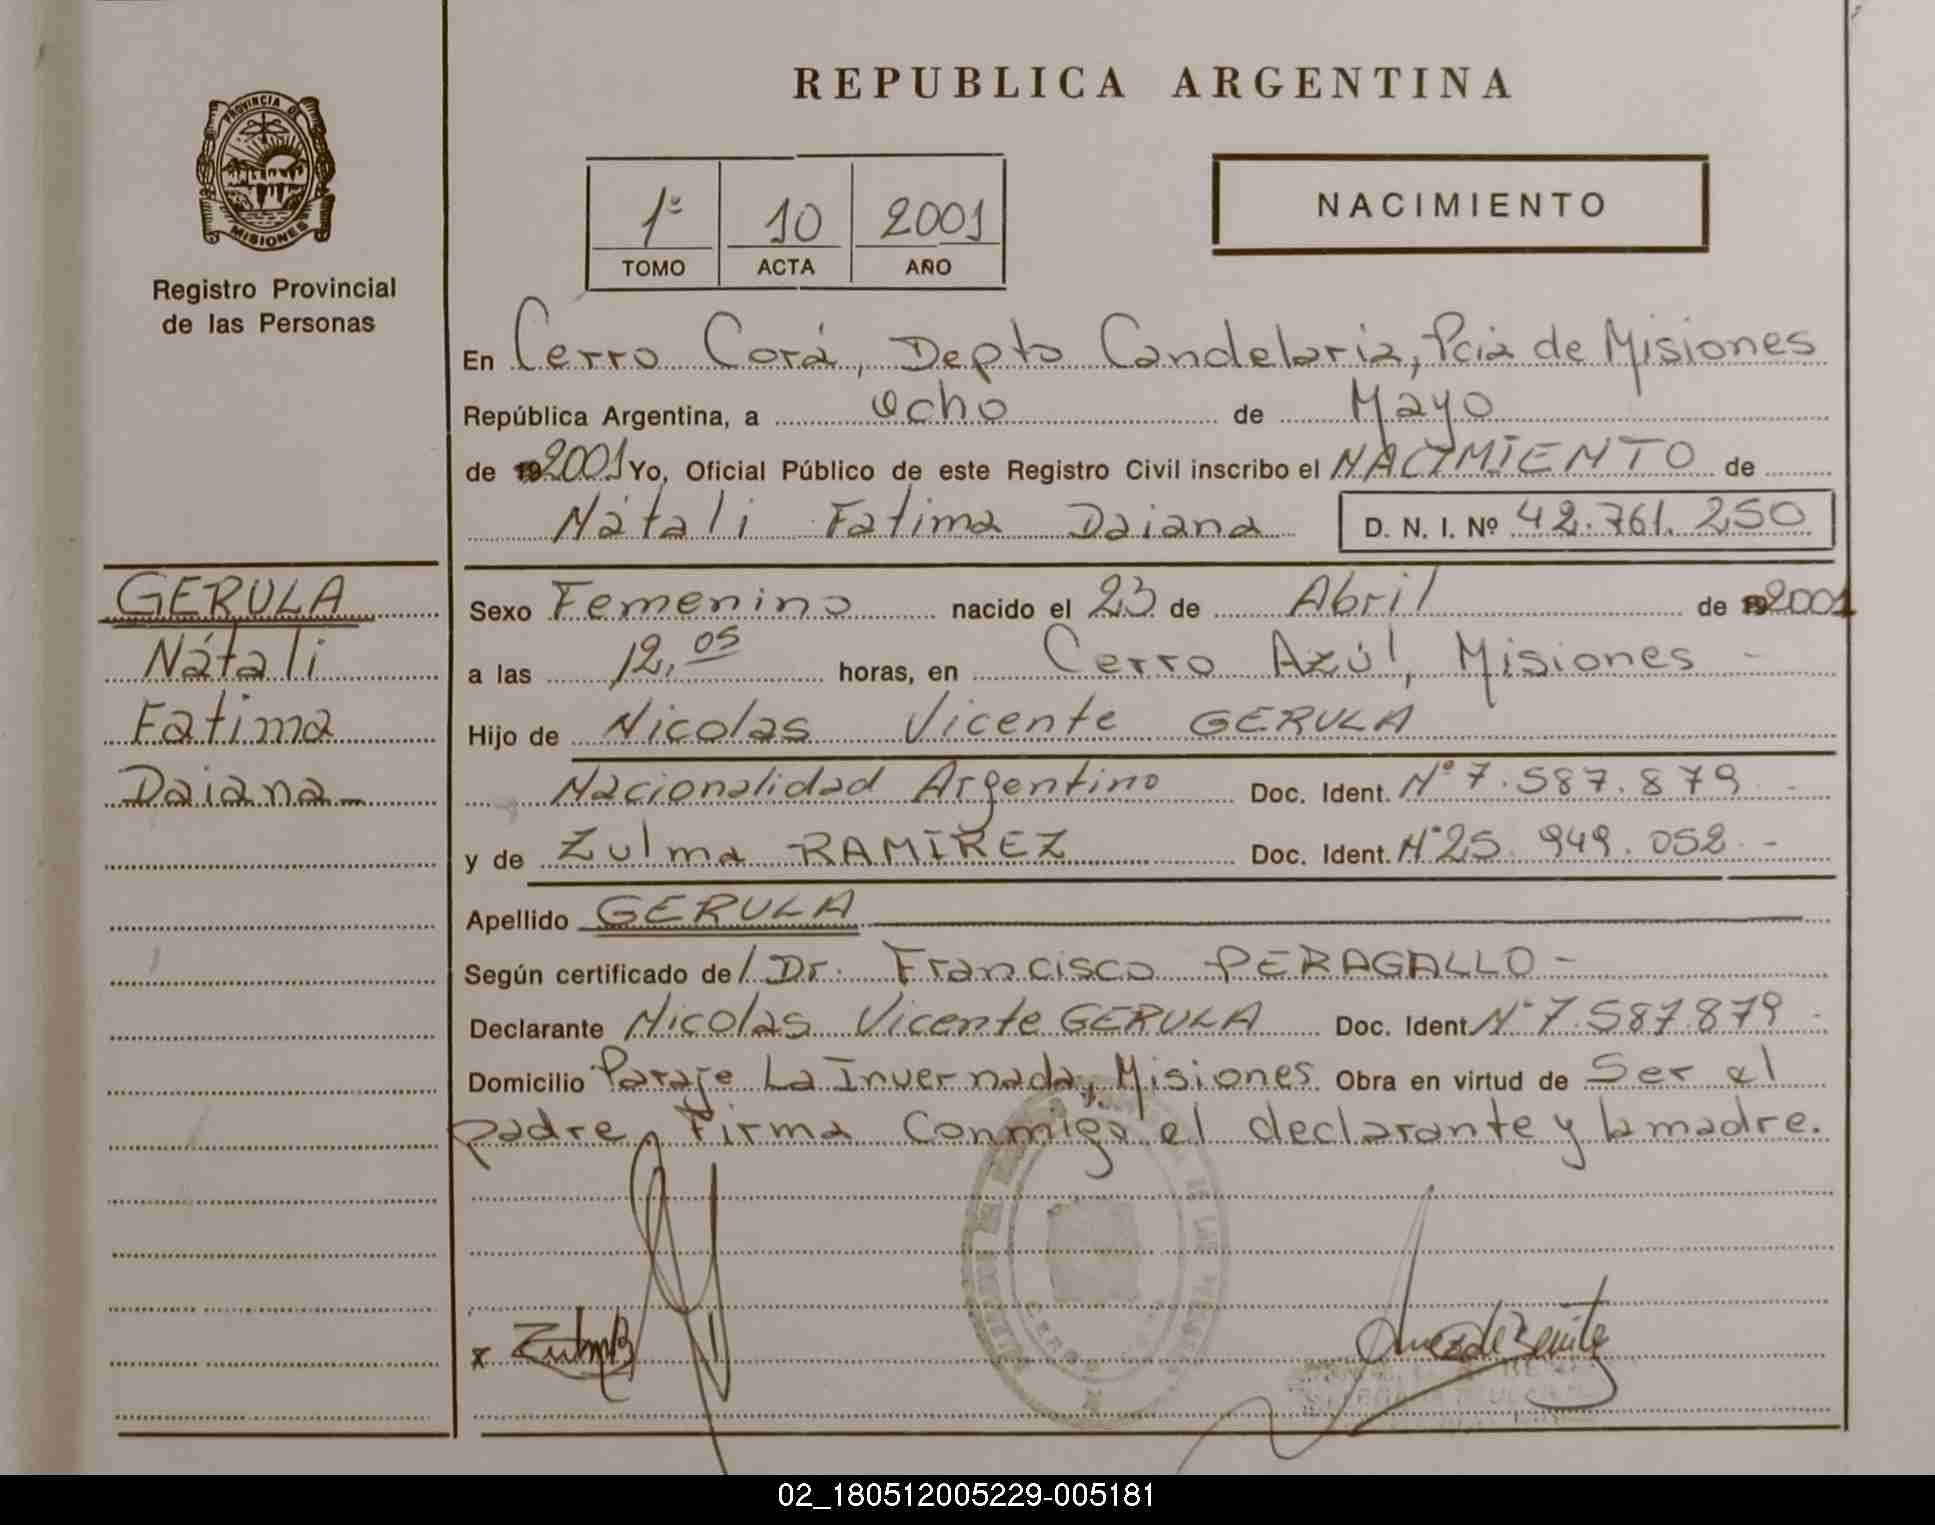 REPUBLICA ARGENTINA
PROVINCIA DE
MISIONES
Registro Provincial
de las Personas
1º 10 2001
TOMO ACTA AÑO
NACIMIENTO
En Cerro Corá, Depto Candelaria, Pcia de Misiones
República Argentina, a ocho de Mayo
de 19 2001 Yo, Oficial Público de este Registro Civil inscribo el NACIMIENTO de
Nátali Fatima Daiana D. N. I. Nº 42.761.250
GERULA
Nátali
Fatima
Daiana
Sexo Femenino nacido el 23 de Abril de 19 2001
a las 12,05 horas, en Cerro Azúl, Misiones -
Hijo de Nicolas Vicente GERULA
Nacionalidad Argentino Doc. Ident. Nº 7.587.879 -
y de Zulma RAMÍREZ Doc. Ident. Nº 25.949.052 -
Apellido GERULA
Según certificado de / Dr. Francisco PERAGALLO -
Declarante Nicolas Vicente GERULA Doc. Ident. Nº 7.587.879 -
Domicilio Paraje La Invernada, Misiones Obra en virtud de Ser el
padre, Firma conmigo el declarante y la madre.
02_180512005229-005181